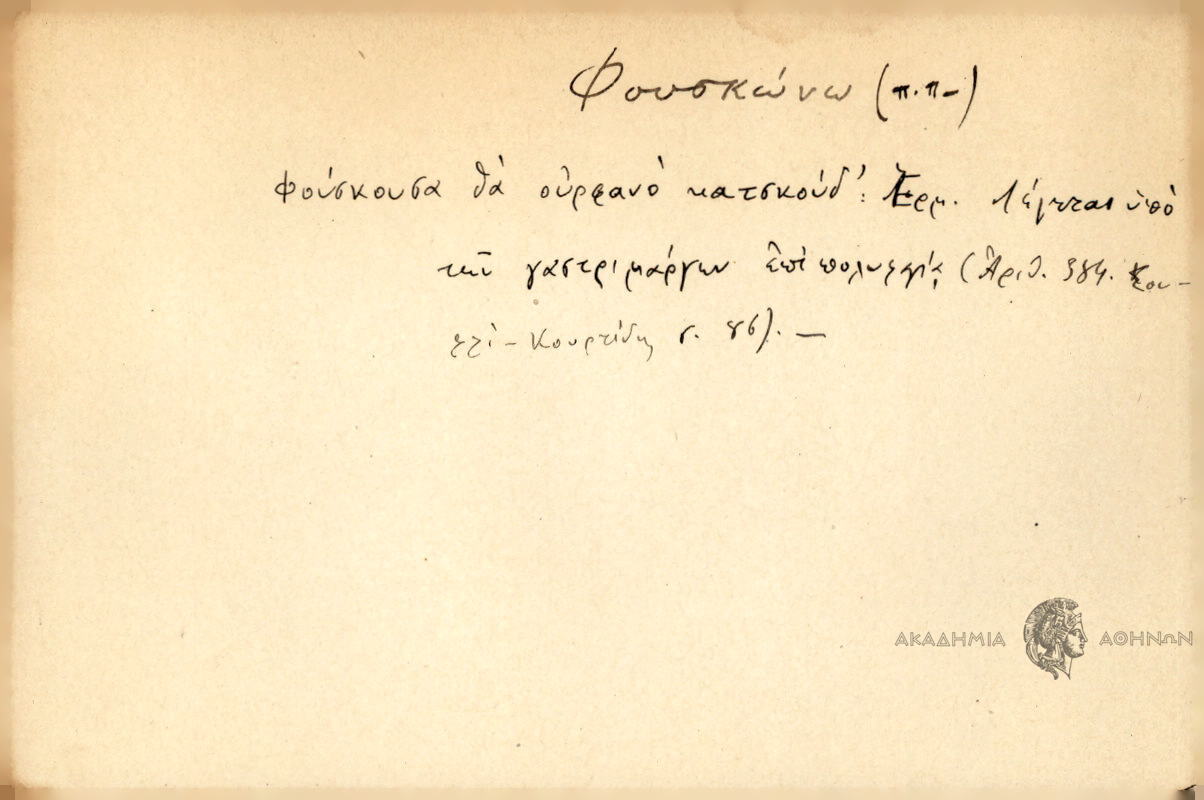 Φουσκώνω (π.π-)
φούσκουσα θὰ οὐρφανὸ κατσκούδ': Ἑρμ. Λέγεται ὑπὸ
τῶν γαστριμάργων ἐπὶ πολυφαγίᾳ (Ἀριθ. 384.
Κουρτίδης σ. 86). —
ΑΚΑΔΗΜΙΑ ΑΘΗΝΩΝ